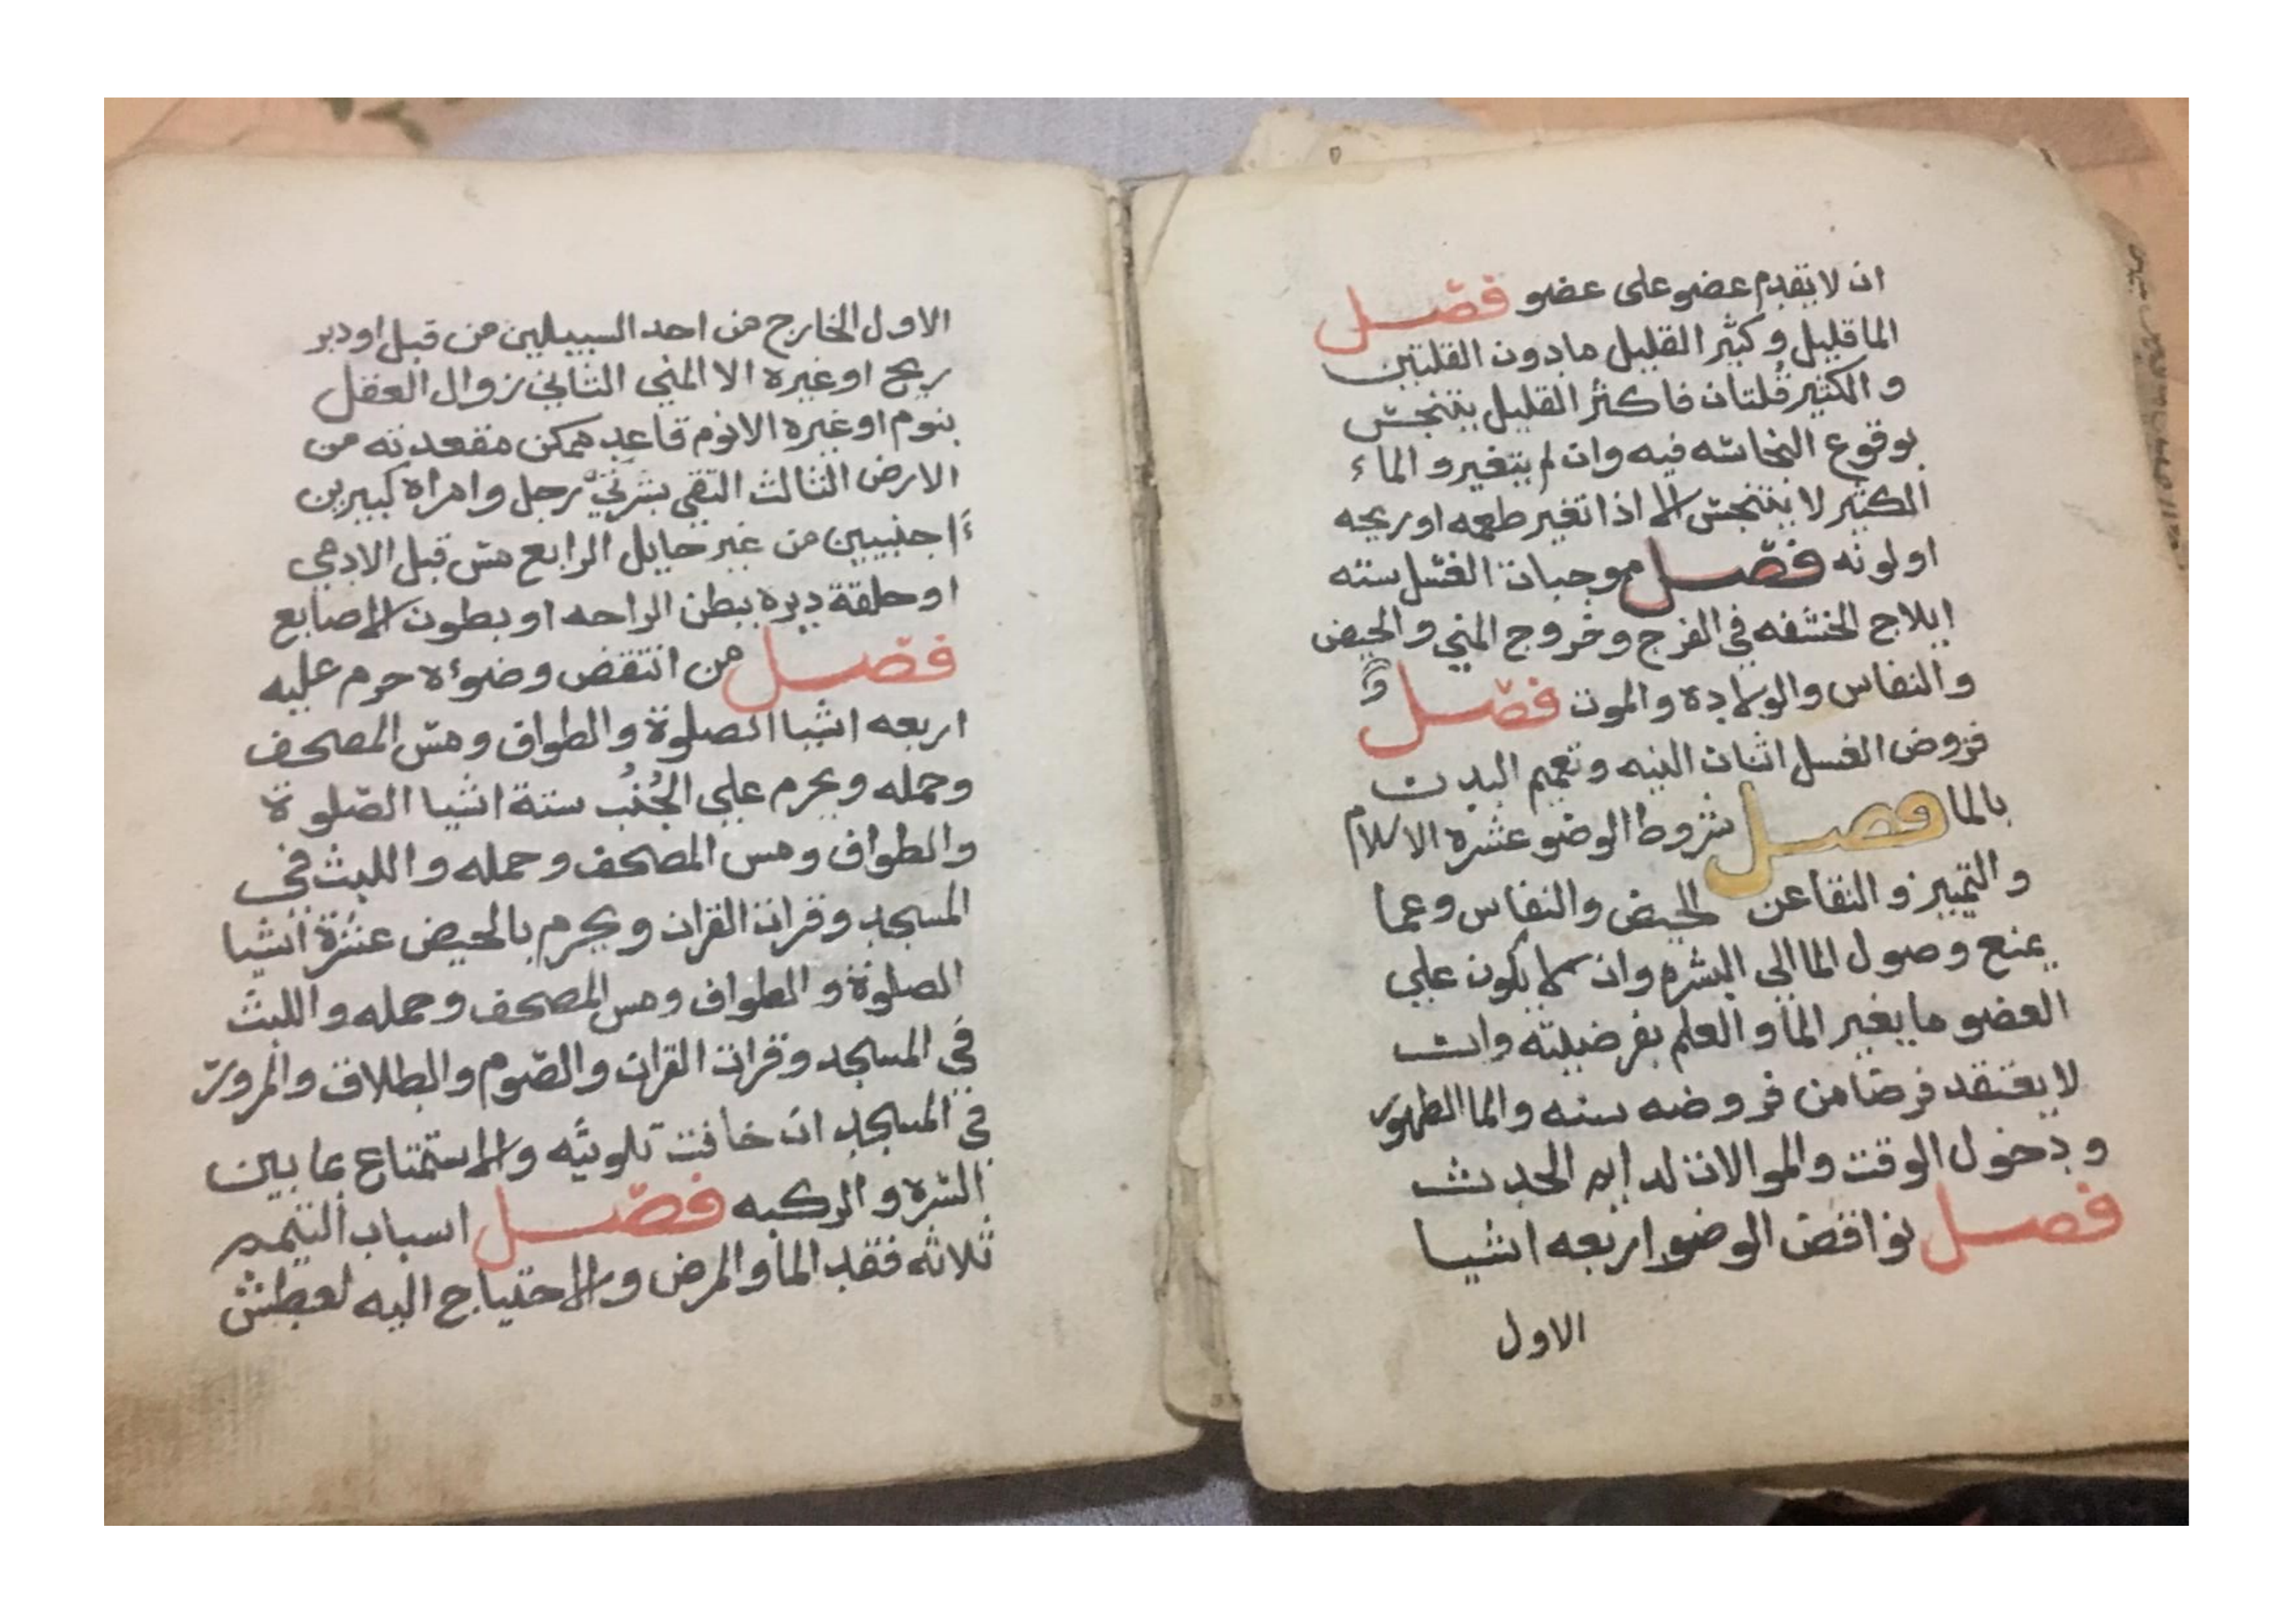 ان لا تقدم عضو على عضو فصل
الما قليل وكثير القليل مادون القلتين
والكثير قلتان فاكثر القليل يتنجس
بوقوع النجاسه فيه وان لم يتغير والماء
الكثير لا يتنجس الا اذا تغير طعمه او ريحه
او لونه فصل موجبات الغسل سته
ايلاج الخشفه في الفرج وخروج المني والحيض
والنفاس والولادة والموت فصل و
فروض الغسل اثنان النيه وتعميم البدن
بالما فصل شروط الوضو عشره الاسلام
والتمييز والنقا عن الحيض والنفاس وعما
يمنع وصول الما الى البشره وان لا يكون علي
العضو ما يغير الما والعلم بفرضيته وان
لا يعتقد فرضا من فروضه سنه والما الطهور
ودخول الوقت والموالات لدايم الحدث
فصل نواقض الوضو اربعه اشيا
الاول
الاول الخارج من احد السبيلين من قبل او دبر
ريح او غيره الا المني الثاني زوال العقل
بنوم او غيره الا نوم قاعد ممكن مقعدته من
الارض الثالث التقي بشرتي رجل وامراة كبيرين
اجنبيين من غير حايل الرابع مس قبل الادمي
او حلقة دبره ببطن الراحه او بطون الاصابع
فصل من انتقض وضوءه حرم عليه
اربعه اشيا الصلوة والطواف ومس المصحف
وحمله ويحرم علي الجُنُب ستة اشيا الصلوة
والطواف ومس المصحف وحمله واللبث في
المسجد وقرات القران ويحرم بالحيض عشرة اشيا
الصلوة والطواف ومس المصحف وحمله واللبث
في المسجد وقرات القران والصوم والطلاق والمرور
في المسجد ان خافت تلويثه والاستمتاع بما بين
السره والركبه فصل اسباب التيمم
ثلاثه فقد الما والمرض والاحتياج اليه لعطش